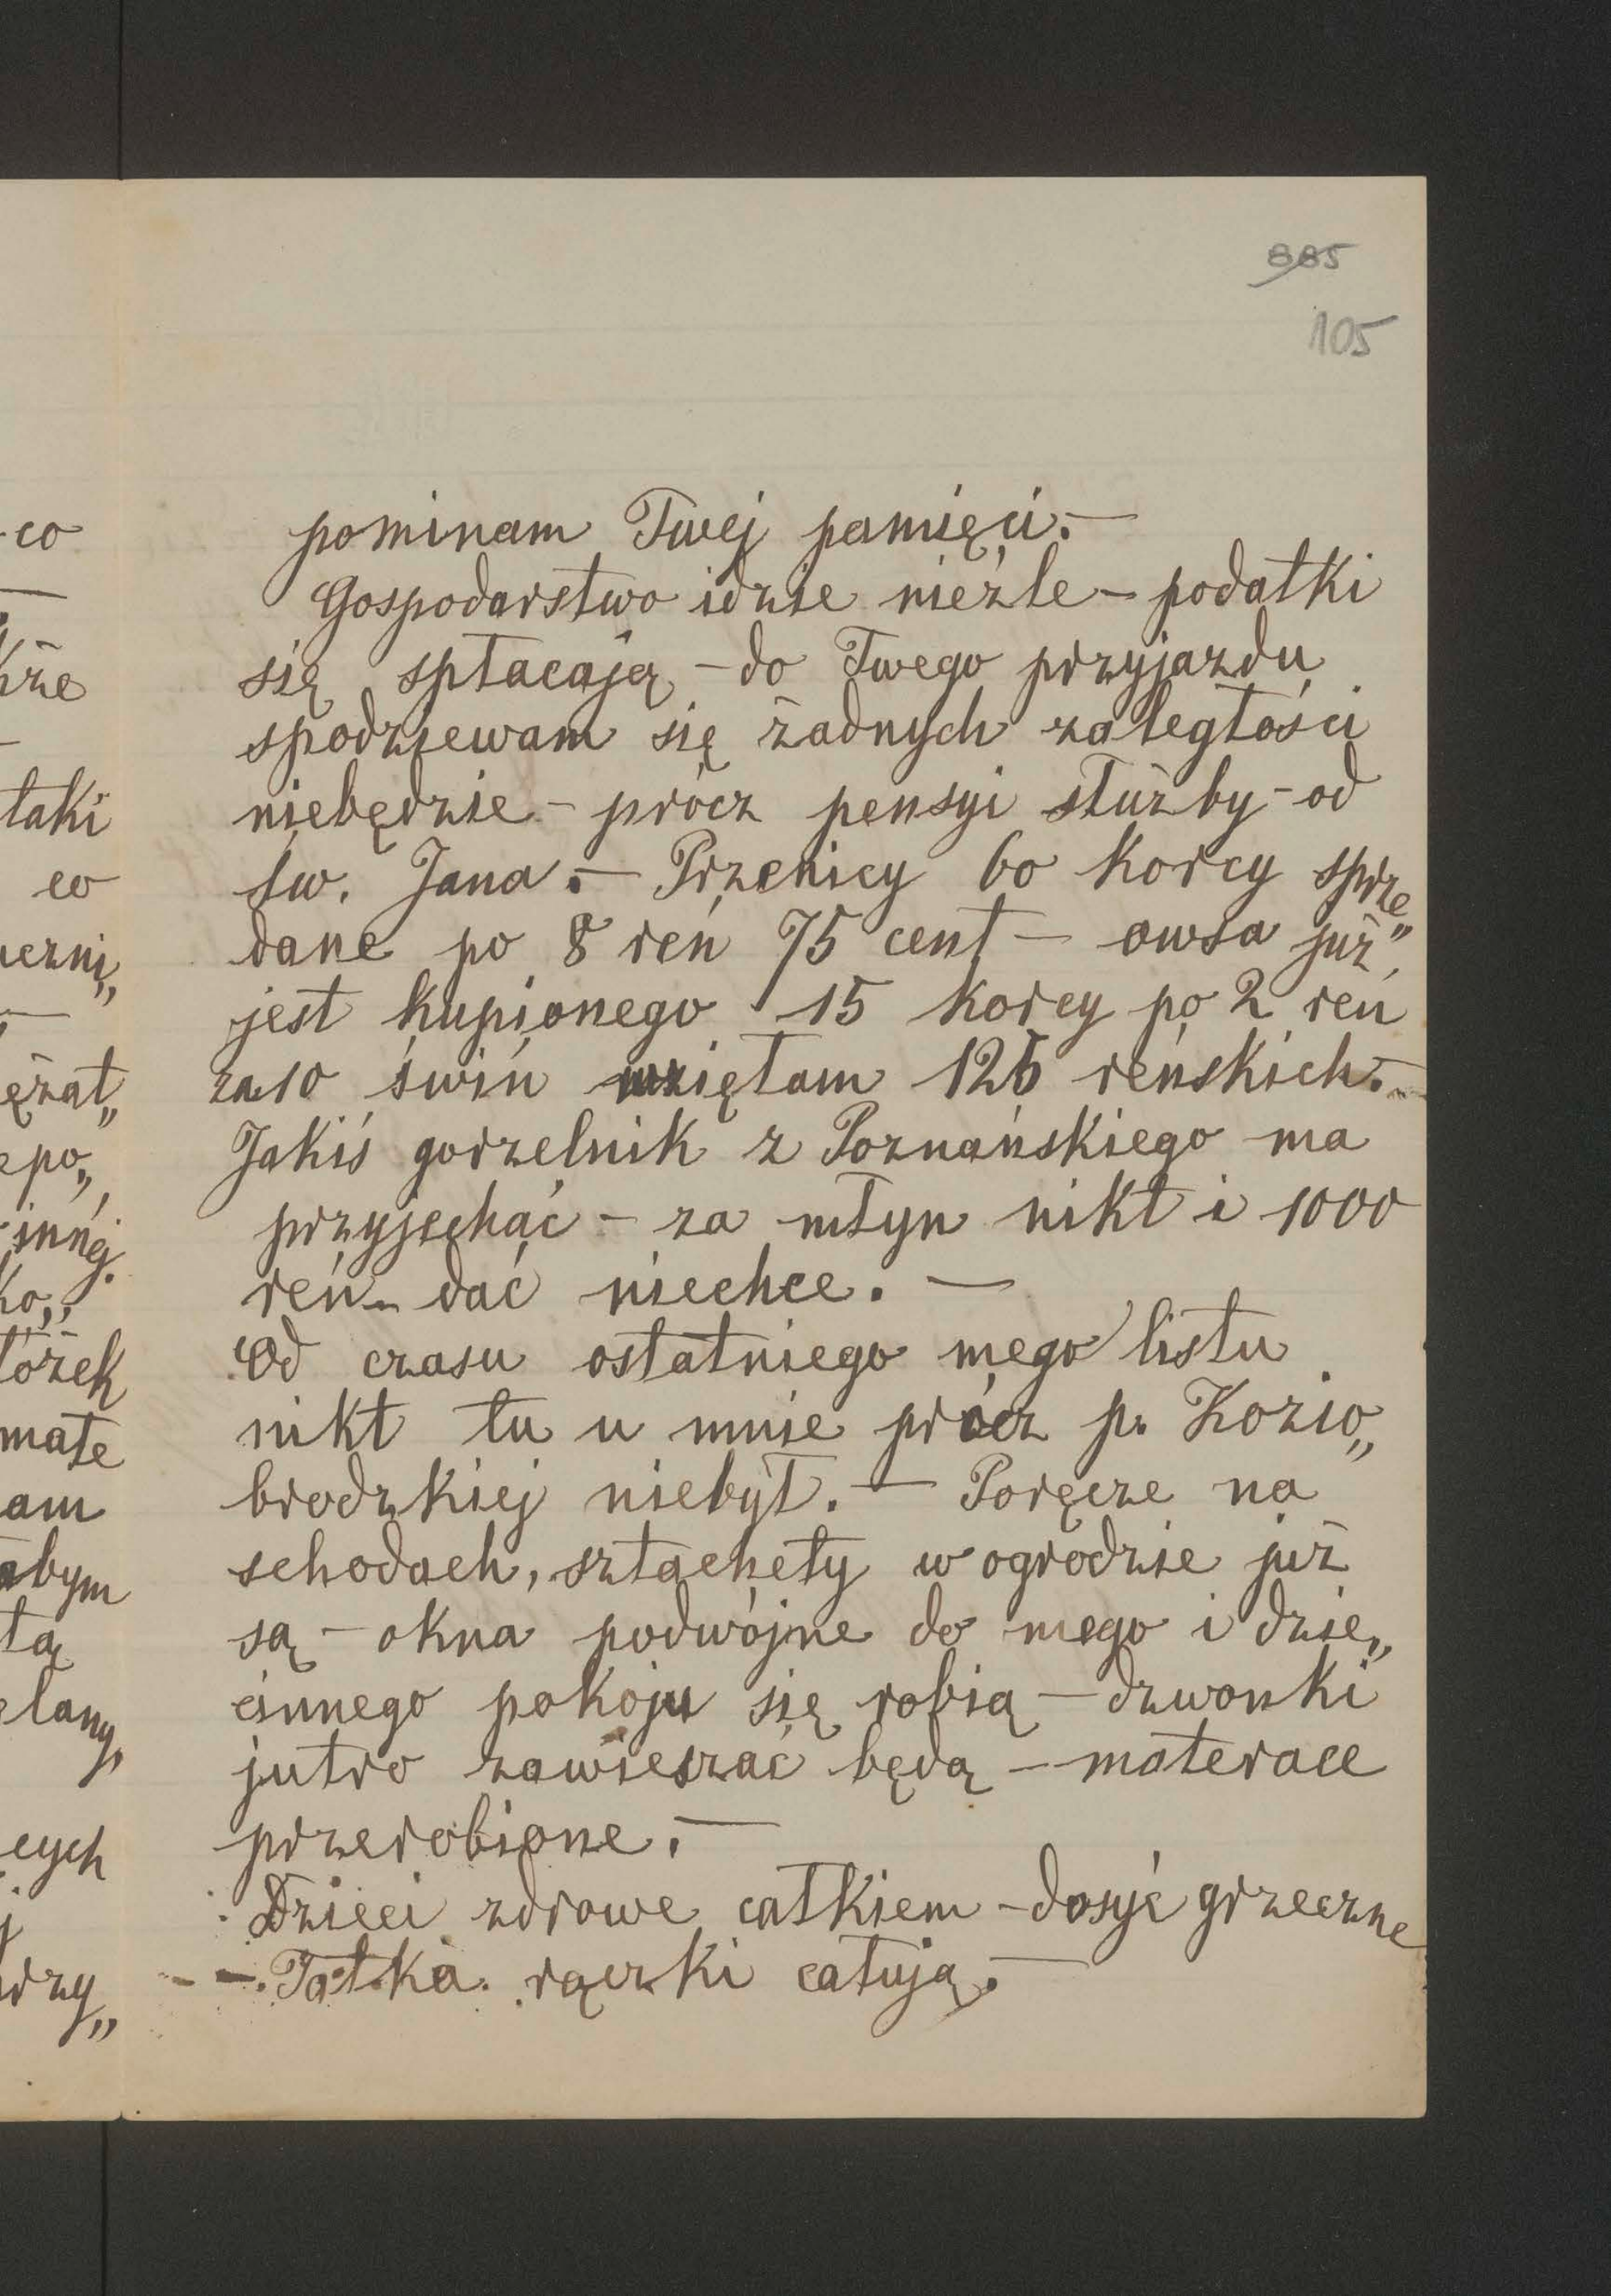 885
105
pominam Twej pamięci.—
Gospodarstwo idzie nieźle – podatki
się spłacają – do Twego przyjazdu
spodziewam się żadnych zaległości
niebędzie – prócz pensyi służby – od
św. Jana.— Pszenicy 60 korcy sprze„
dane po 8 reń 75 cent — owsa już
jest kupionego 15 korcy po 2 reń
za 10 świń wzięłam 126 reńskich.—
Jakiś gorzelnik z Poznańskiego ma
przyjechać – za młyn nikt i 1000
reń – dać niechce. —
Od czasu ostatniego mego listu
nikt tu u mnie prócz p. Kozio„
brodzkiej niebył. — Poręcze na
schodach, sztachety w ogrodzie już
są – okna podwójne do mego i dzie„
cinnego pokoju się robią – dzwonki
jutro zawieszać będą – materace
przerobione. —
Dzieci zdrowe całkiem – dosyć grzeczne
– – Tatka rączki całują.—
co
kże
taki
co
eczni„
ężał„
epo„
innéj.
ko„
łóżek
małe
am
abym
tą
elany,
cych
j
przy„